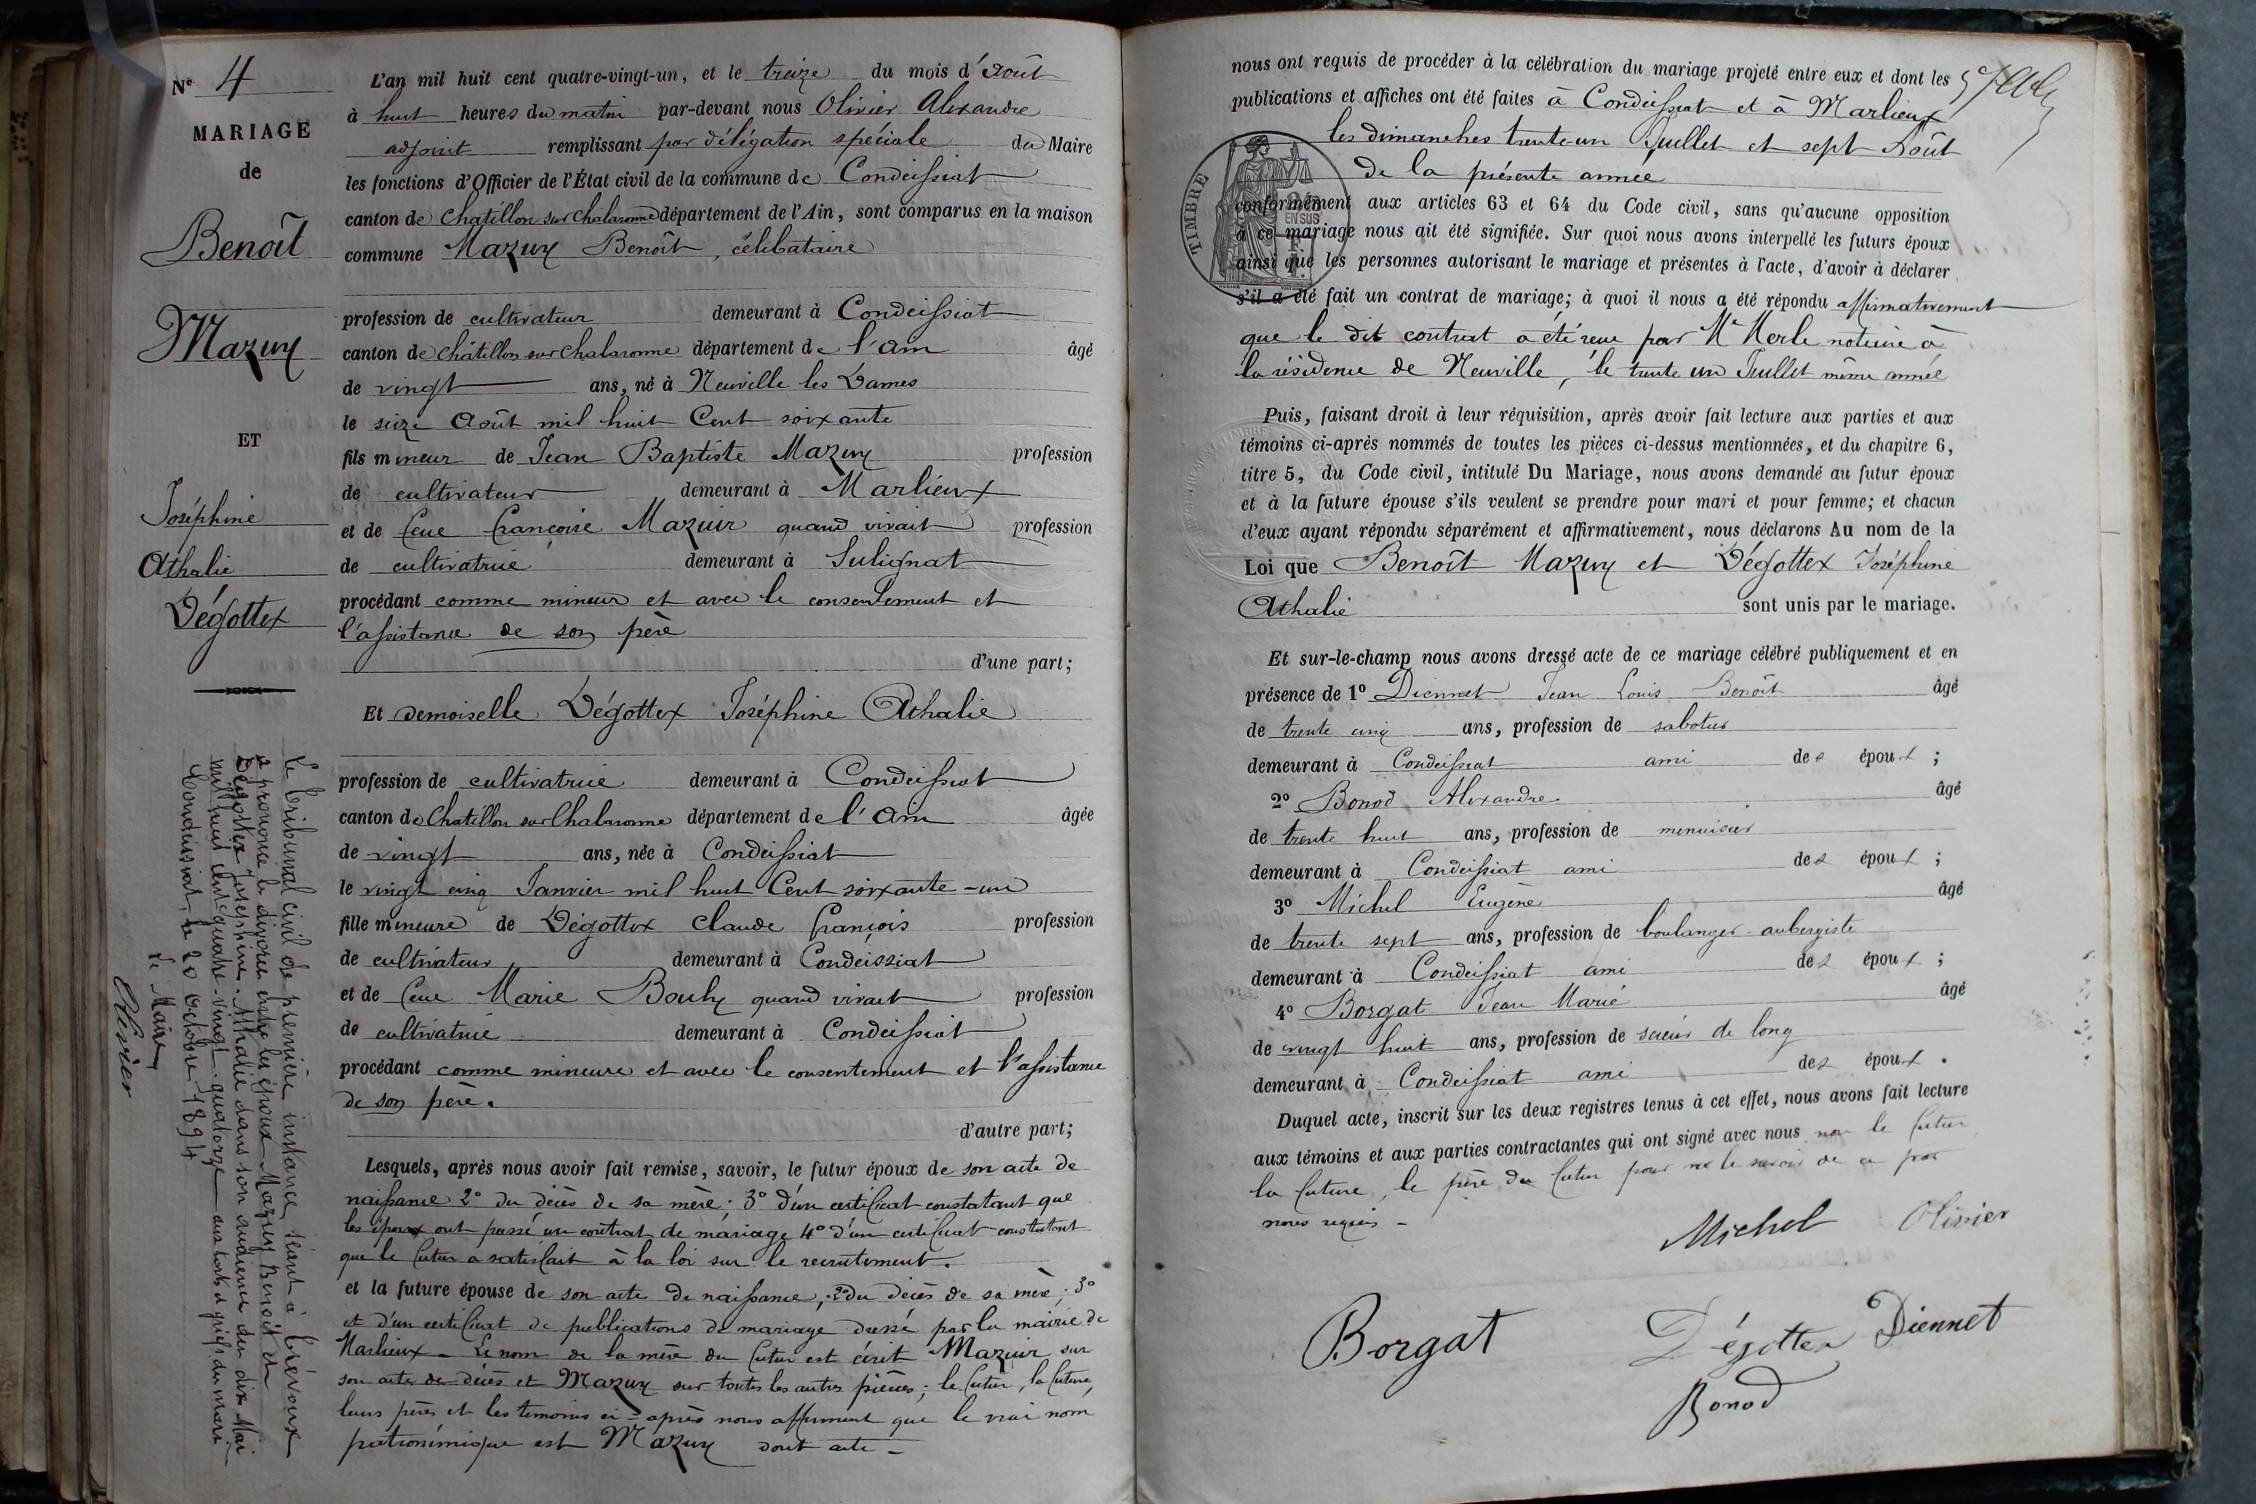 Nº 4
MARIAGE
de
Benoît
Mazuy
ET
Joséphine
Athalie
Dégottex
Le tribunal civil de première instance séant à Trévoux
a prononcé le divorce entre les époux Mazuy Benoît et
Dégottex Joséphine-Athalie dans son audience du dix Mai
mil huit cent quatre-vingt-quatorze aux torts et griefs du mari
Condeissiat, le 20 octobre 1894
Le Maire
Olivier
L'an mil huit cent quatre-vingt-un, et le treize du mois d'Août
à huit heures du matin par-devant nous Olivier Alexandre
adjoint remplissant par délégation spéciale du Maire
les fonctions d'Officier de l'État civil de la commune de Condeissiat
canton de Chatillon sur Chalaronne département de l'Ain, sont comparus en la maison
commune Mazuy Benoît, célibataire
profession de cultivateur demeurant à Condeissiat
canton de Châtillon sur Chalaronne département de l'Ain âgé
de vingt ans, né à Neuville les Dames
le seize Août mil huit Cent soixante
fils mineur de Jean Baptiste Mazuy profession
de cultivateur demeurant à Marlieux
et de feue Françoise Mazuir quand vivait profession
de cultivatrice demeurant à Sulignat
procédant comme mineur et avec le consentement et
l'assistance de son père
d'une part;
Et demoiselle Dégottex Joséphine Athalie
profession de cultivatrice demeurant à Condeissiat
canton de Chatillon sur Chalaronne département de l'Ain âgée
de vingt ans, née à Condeissiat
le vingt cinq Janvier mil huit Cent soixante-un
fille mineure de Dégottex Claude François profession
de cultivateur demeurant à Condeissiat
et de feue Marie Bouhy quand vivait profession
de cultivatrice demeurant à Condeissiat
procédant comme mineure et avec le consentement et l'assistance
de son père.
d'autre part;
Lesquels, après nous avoir fait remise, savoir, le futur époux de son acte de
naissance 2º du décès de sa mère; 3º d'un certificat constatant que
les époux ont passé un contrat de mariage 4º d'un certificat constatant
que le futur a satisfait à la loi sur le recrutement.
et la future épouse de son acte de naissance, 2º du décès de sa mère; 3º
et d'un certificat de publications de mariage dressé par la mairie de
Marlieux – Le nom de la mère du futur est écrit Mazuir sur
son acte de décès et Mazuy sur toutes les autres pièces; le futur, la future,
leurs pères et les témoins ci-après nous affirment que le vrai nom
patronimique est Mazuy dont acte –
nous ont requis de procéder à la célébration du mariage projeté entre eux et dont les
publications et affiches ont été faites à Condeissiat et à Marlieux
les dimanches trente-un Juillet et sept Août
de la présente année
TIMBRE
EN SUS
conformément aux articles 63 et 64 du Code civil, sans qu'aucune opposition
à ce mariage nous ait été signifiée. Sur quoi nous avons interpellé les futurs époux
ainsi que les personnes autorisant le mariage et présentes à l'acte, d'avoir à déclarer
s'il a été fait un contrat de mariage; à quoi il nous a été répondu affirmativement
que le dit contrat a été reçu par Me Merle notaire à
la résidence de Neuville, le trente un Juillet même année
Puis, faisant droit à leur réquisition, après avoir fait lecture aux parties et aux
témoins ci-après nommés de toutes les pièces ci-dessus mentionnées, et du chapitre 6,
titre 5, du Code civil, intitulé Du Mariage, nous avons demandé au futur époux
et à la future épouse s'ils veulent se prendre pour mari et pour femme; et chacun
d'eux ayant répondu séparément et affirmativement, nous déclarons Au nom de la
Loi que Benoît Mazuy et Dégottex Joséphine
Athalie sont unis par le mariage.
Et sur-le-champ nous avons dressé acte de ce mariage célébré publiquement et en
présence de 1º Diennet Jean Louis Benoît âgé
de trente cinq ans, profession de sabotier
demeurant à Condeissiat ami des époux;
2º Bonod Alexandre âgé
de trente huit ans, profession de menuisier
demeurant à Condeissiat ami des époux;
3º Michel Eugène âgé
de trente sept ans, profession de boulanger-aubergiste
demeurant à Condeissiat ami des époux;
4º Borgat Jean Marie âgé
de vingt huit ans, profession de scieur de long
demeurant à Condeissiat ami des époux.
Duquel acte, inscrit sur les deux registres tenus à cet effet, nous avons fait lecture
aux témoins et aux parties contractantes qui ont signé avec nous non le futur
la future, le père du futur pour ne le savoir de ce par
nous requis –
Michel Olivier
Borgat Dégottex Diennet
Bonod